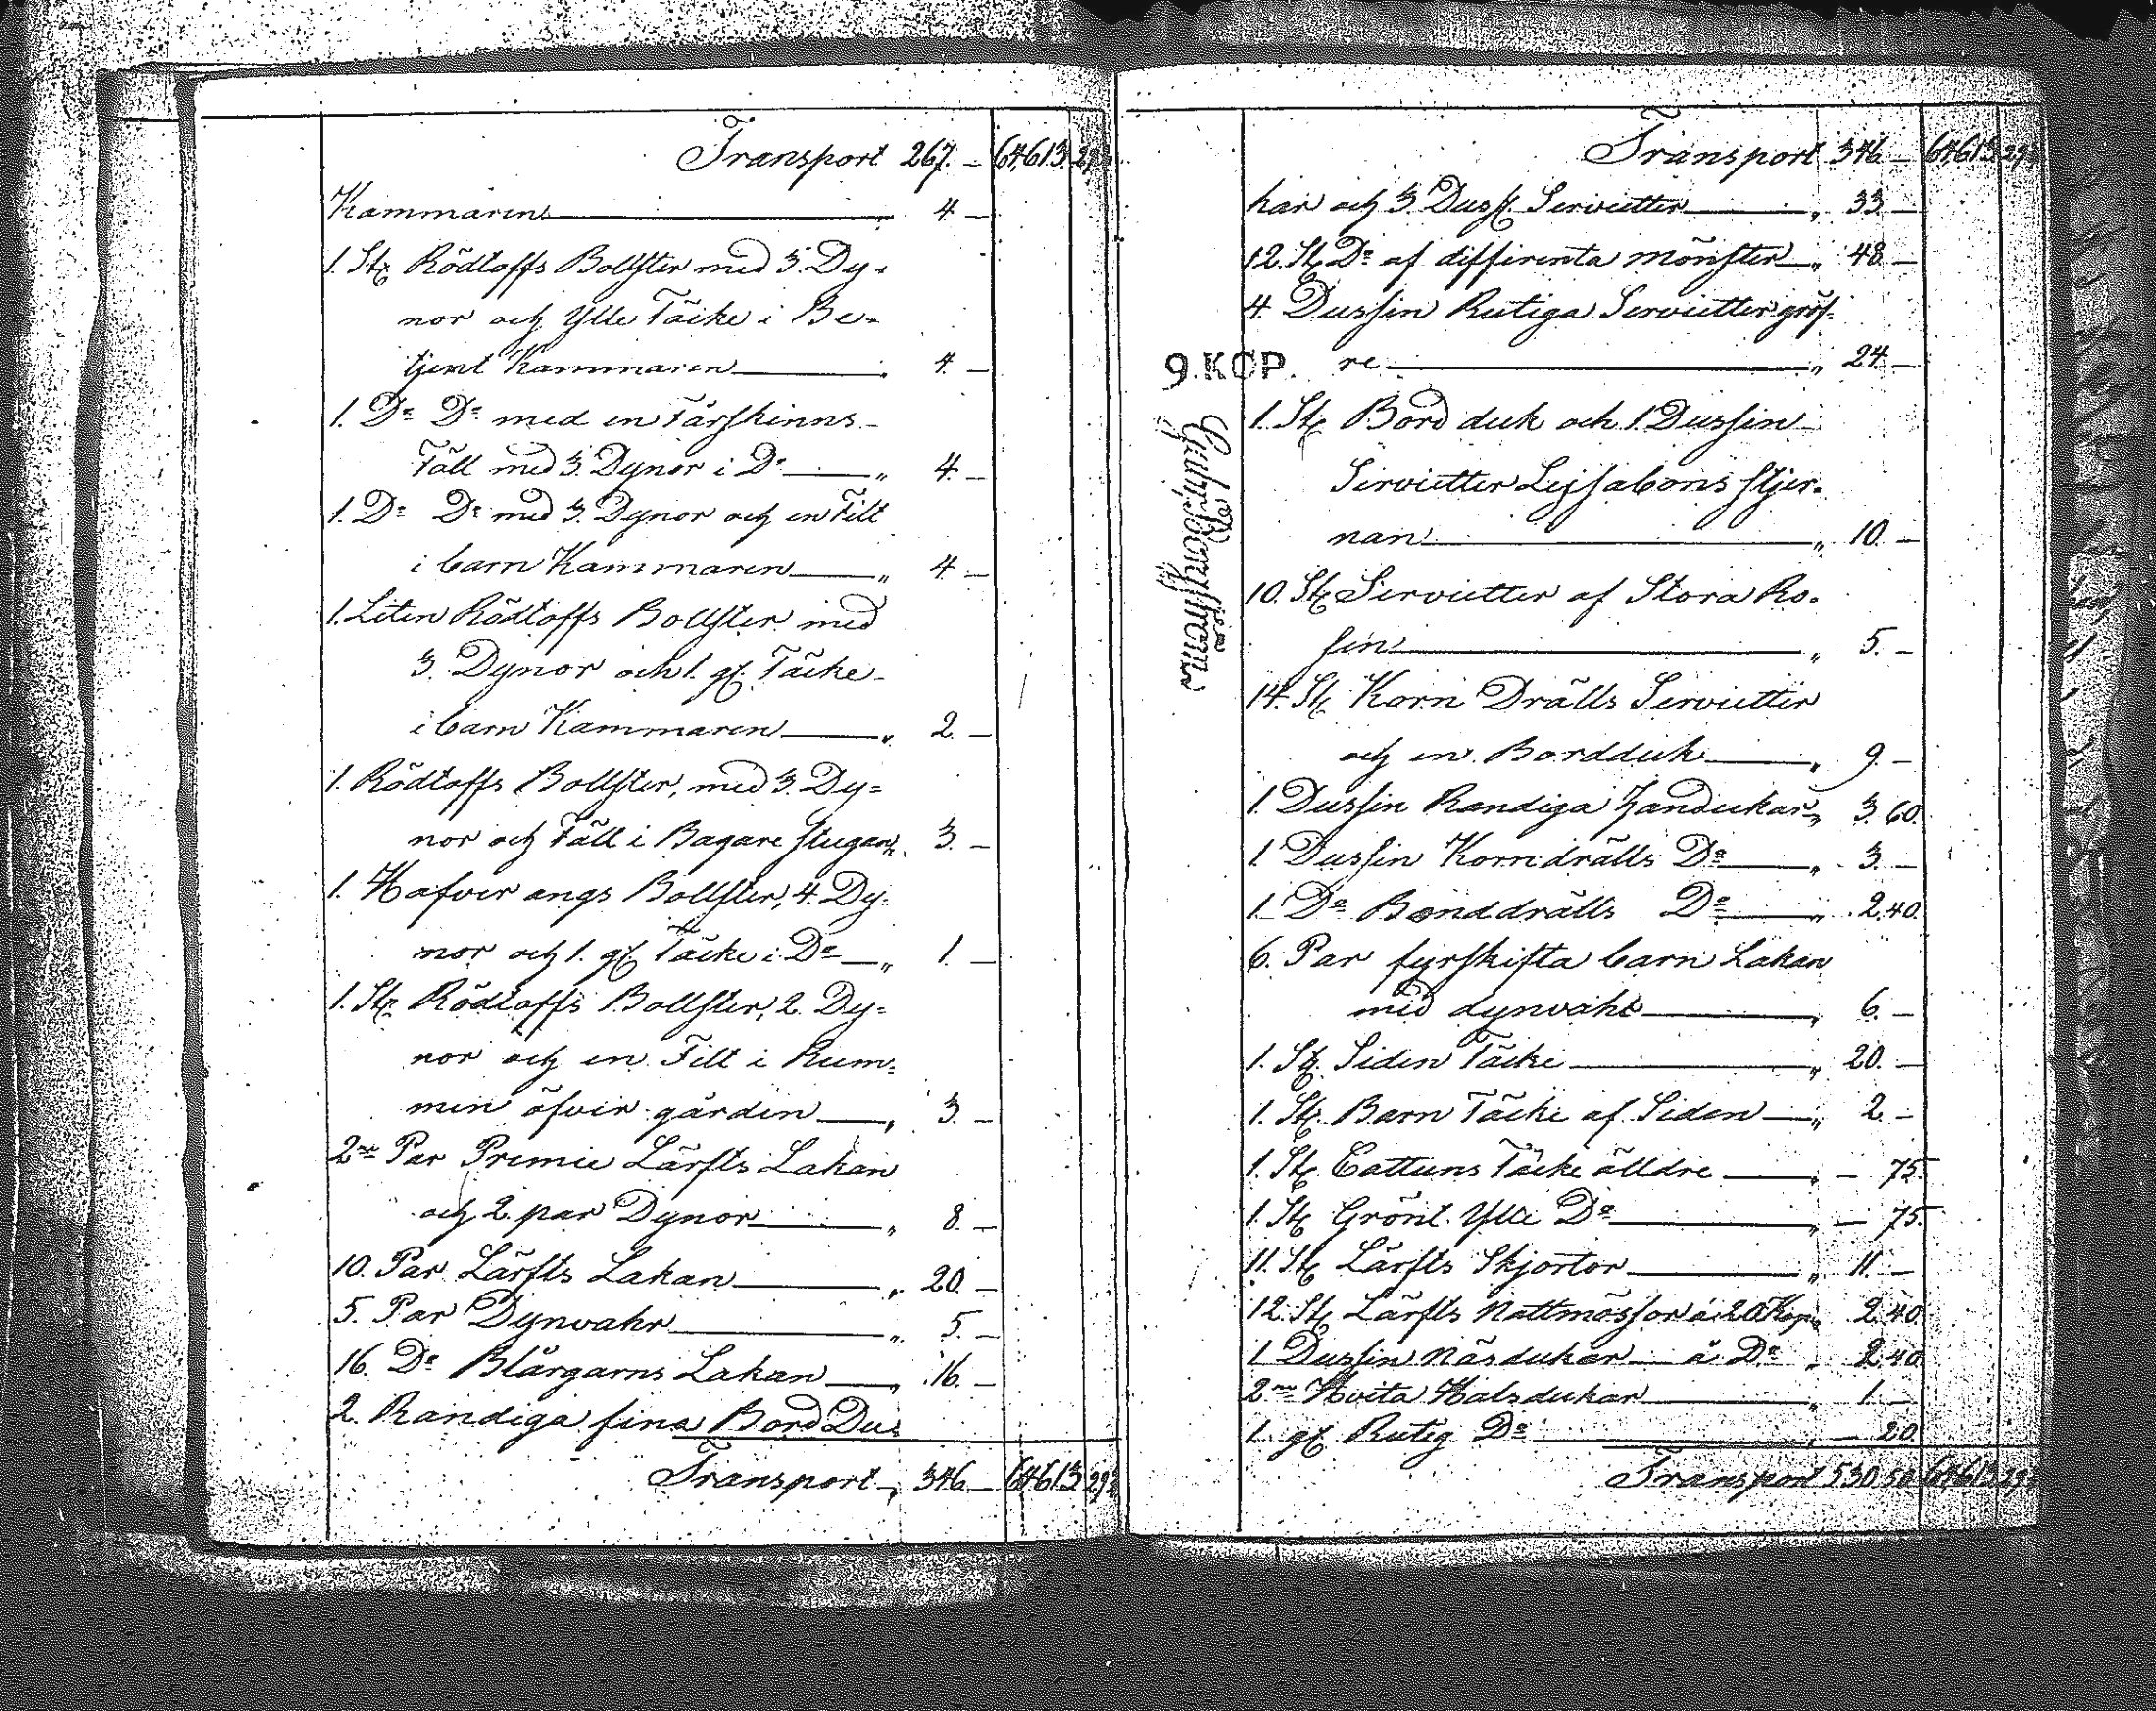 Transport 267. — 64,613. 29 3/4
Kammaren " 4. —
1. St. Rödtoffs Bollster med 3. Dy-
nor och Ylle Täcke i Be-
tjent Kammaren " 4. —
1. Do Do med en Fårskinns
Fäll med 3. Dynor i Do " 4. —
1. Do Do med 3. Dynor och en Filt
i barn Kammaren " 4. —
1. Liten Rödtoffs Bollster med
3. Dynor och 1. gl. Täcke
i barn Kammaren " 2. —
1. Rödtoffs Bollster, med 3. Dy=
nor och Fäll i Bagare stugan " 3. —
1. Hafver angs Bollster, 4. Dy=
nor och 1. gl. Täcke i Do " 1. —
1. St. Rödtoffs Bollster, 2. Dy=
nor och en Filt i Rum=
men öfver gården " 3. —
2ne Par Premie Lärfts Lakan
och 2. par Dynor " 8. —
10. Par Lärfts Lakan " 20. —
5. Par Dynvahr " 5. —
16. Do Blårgarns Lakan " 16. —
2. Randiga fina Bord Du=
Transport " 346. — 64,613. 29
Transport 346 — 64,613. 29
kar och 3. Duss. Servietter " 33 —
12. St. Do af differenta mönster " 48 —
4 Dussin Rutiga Servietter gröf-
re " 24. —
9. KOP.
1. St. Bord duk och 1 Dussin
Servietter Lissabons stjer-
nan " 10. —
10. St. Servietter af Stora Ro-
sen " 5. —
14. St. Korn Drälls Servietter
och en Bordduk " 9. —
1. Dussin Randiga Handukar " 3. 60.
1. Dussin Korndrälls Do " 3. —
1. Do Bonddrälls Do " 2. 40.
6. Par fyrskifta barn Lakan
med dynvahr " 6. —
1. St. Siden Täcke " 20. —
1. St. Barn Täcke af Siden " 2 —
1. St. Cattuns Täcke älldre " — 75.
1. St. Grönt Ylle Do " — 75.
11. St. Lärfts Skjortor " 11. —
12. St. Lärfts Nattmössor á 20 Kop. " 2. 40
1 Dussin Näsdukar á Do " 2. 40
2ne Hvita Halsdukar " 1 —
1. gl. Rutig Do " — 20
Transport 530. 50. 64,613. 29